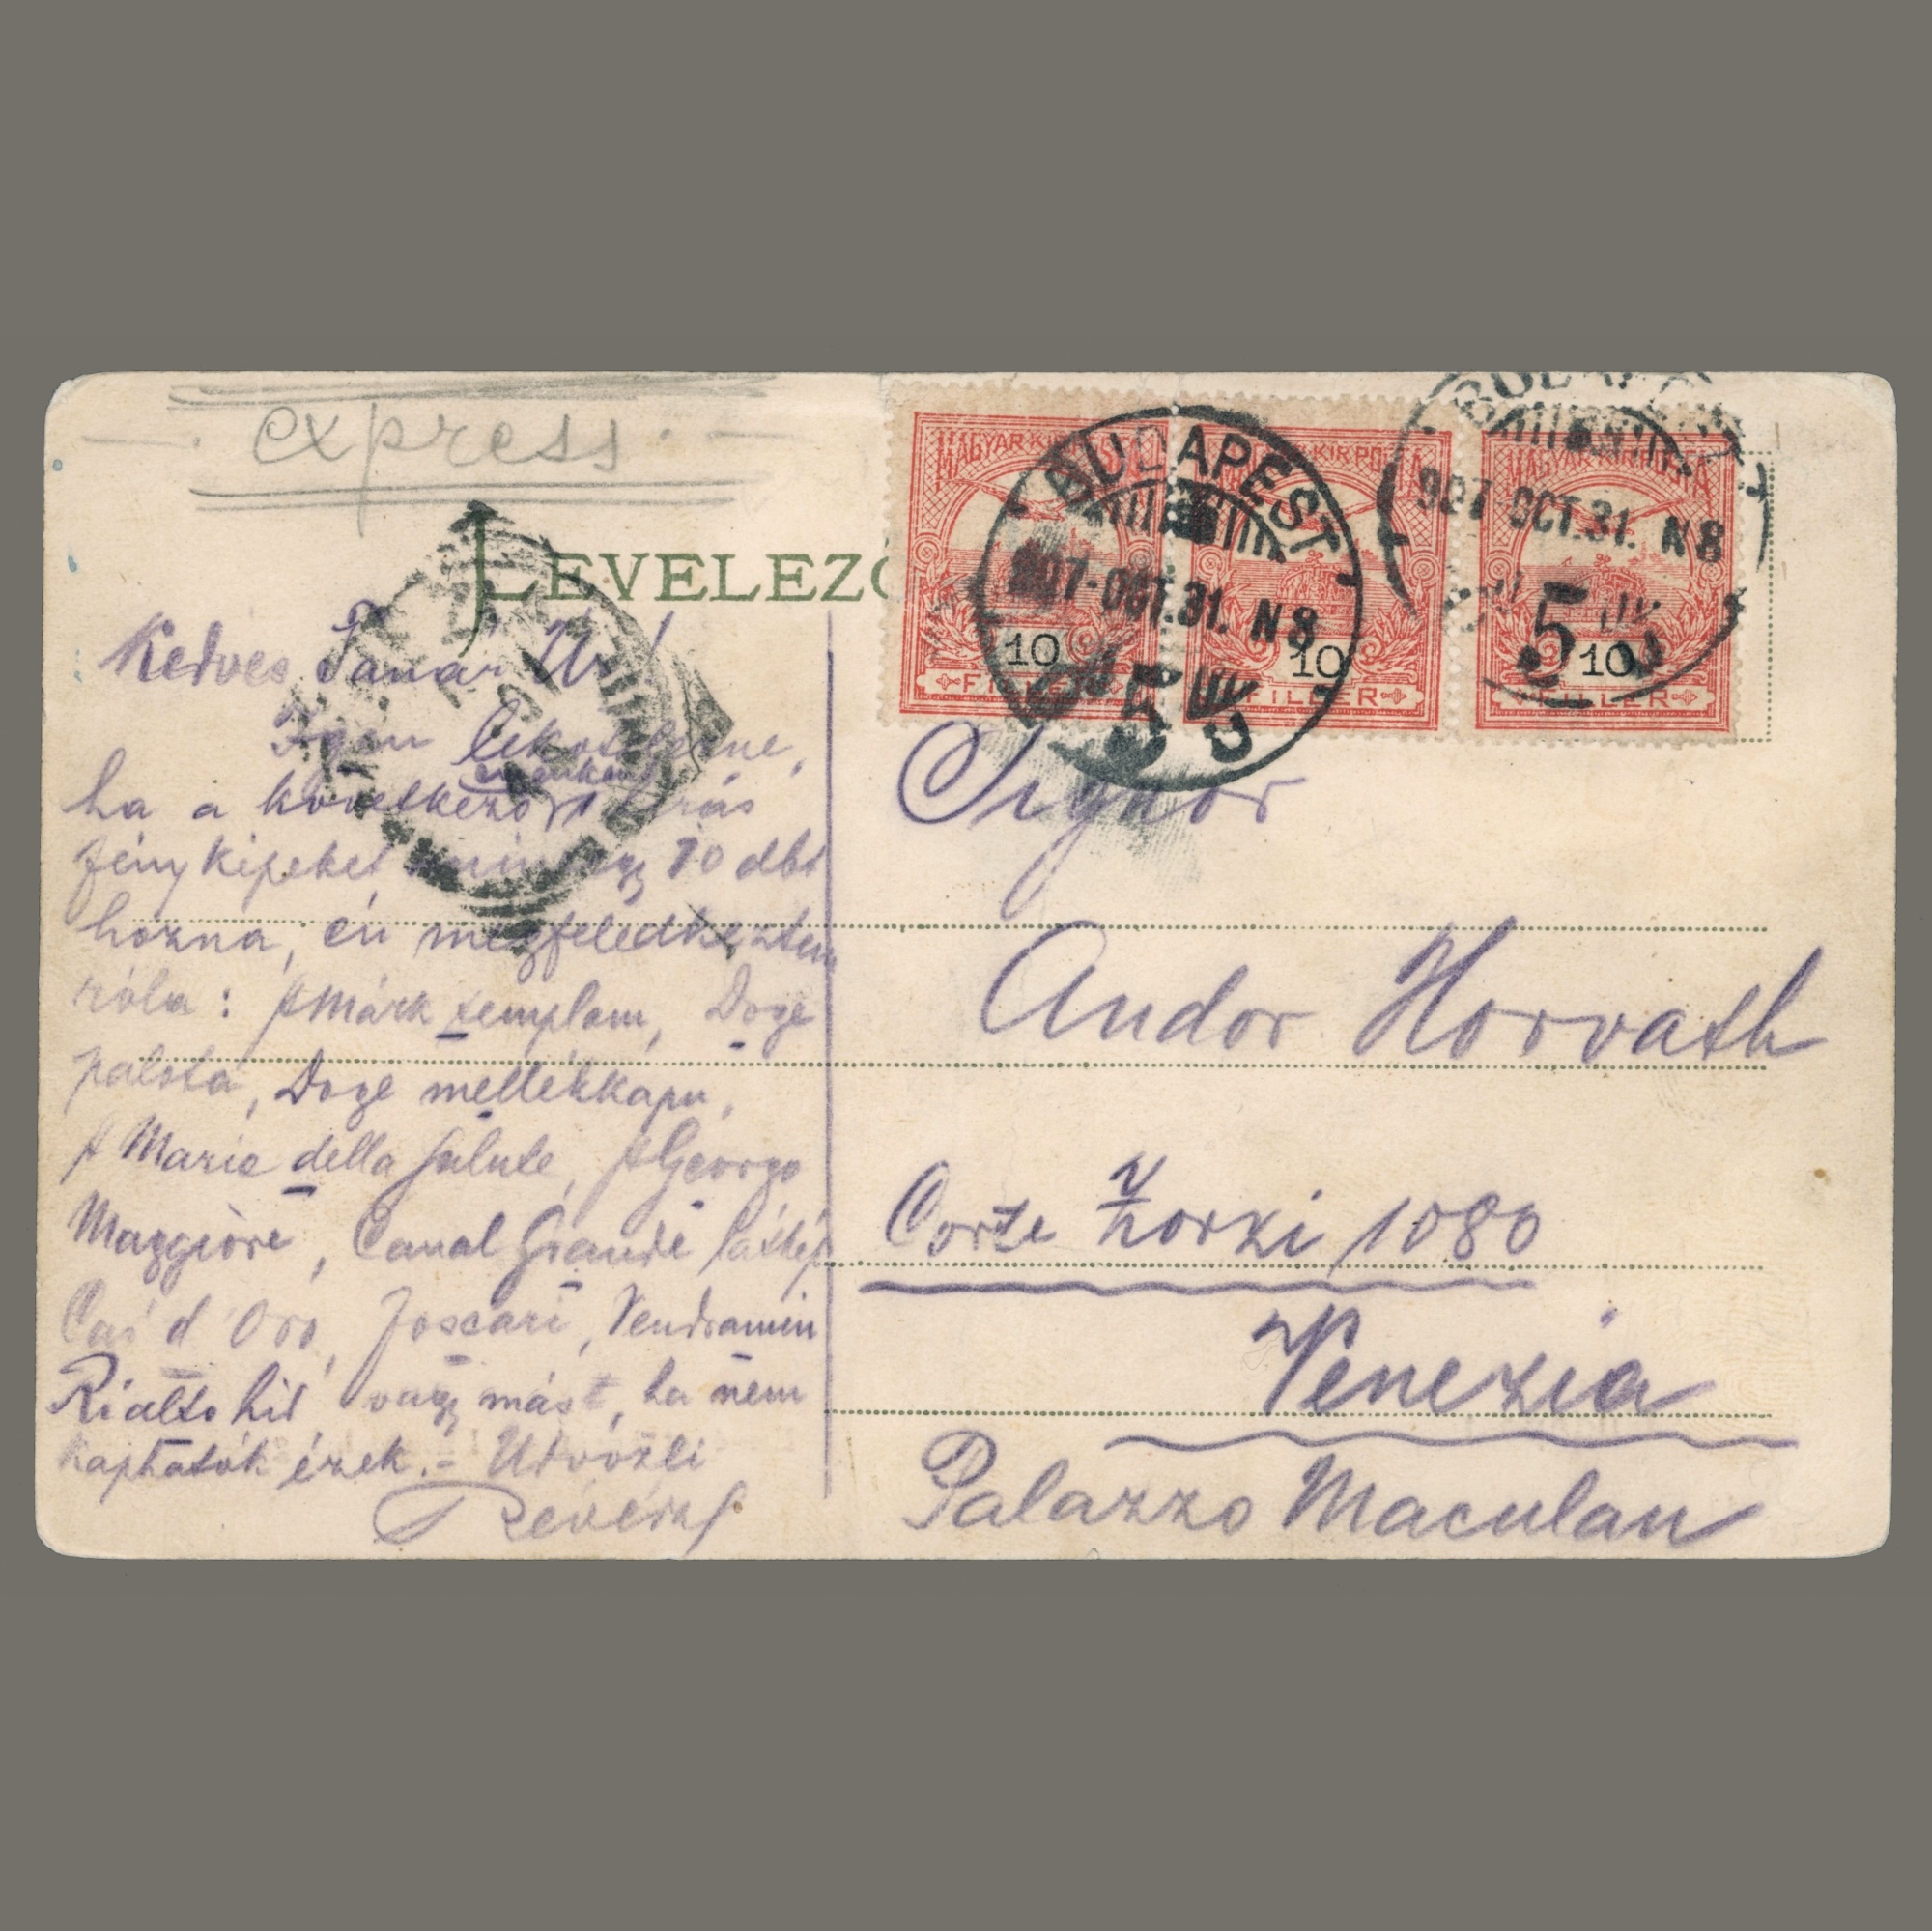 express
LEVELEZŐ
MAGYAR KIR. POSTA
10
FILLÉR
KIR. POSTA
10
FILLÉR
MAGYAR KIR. POSTA
10
FILLÉR
BUDAPEST
907-OCT.31. N8
5
907-OCT.31. N8
5
Kedves Tanár Úr!
Igen lekötelezne,
ha a következő
fényképeket 10 dbt
hozna, én megfeledkeztem
róla: S Márk templom, Doge
palota, Doge mellékkapu,
S Maria della Salute, S Georgo
Maggiore, Canal Grande látkép
Ca d'Oro, Foscari, Vendramin
Rialto hid vagy mást, ha nem
kaphatók ezek. - Üdvözli
Révész
Signor
Andor Horvath
Corte Zorzi 1080
Venezia
Palazzo Maculan